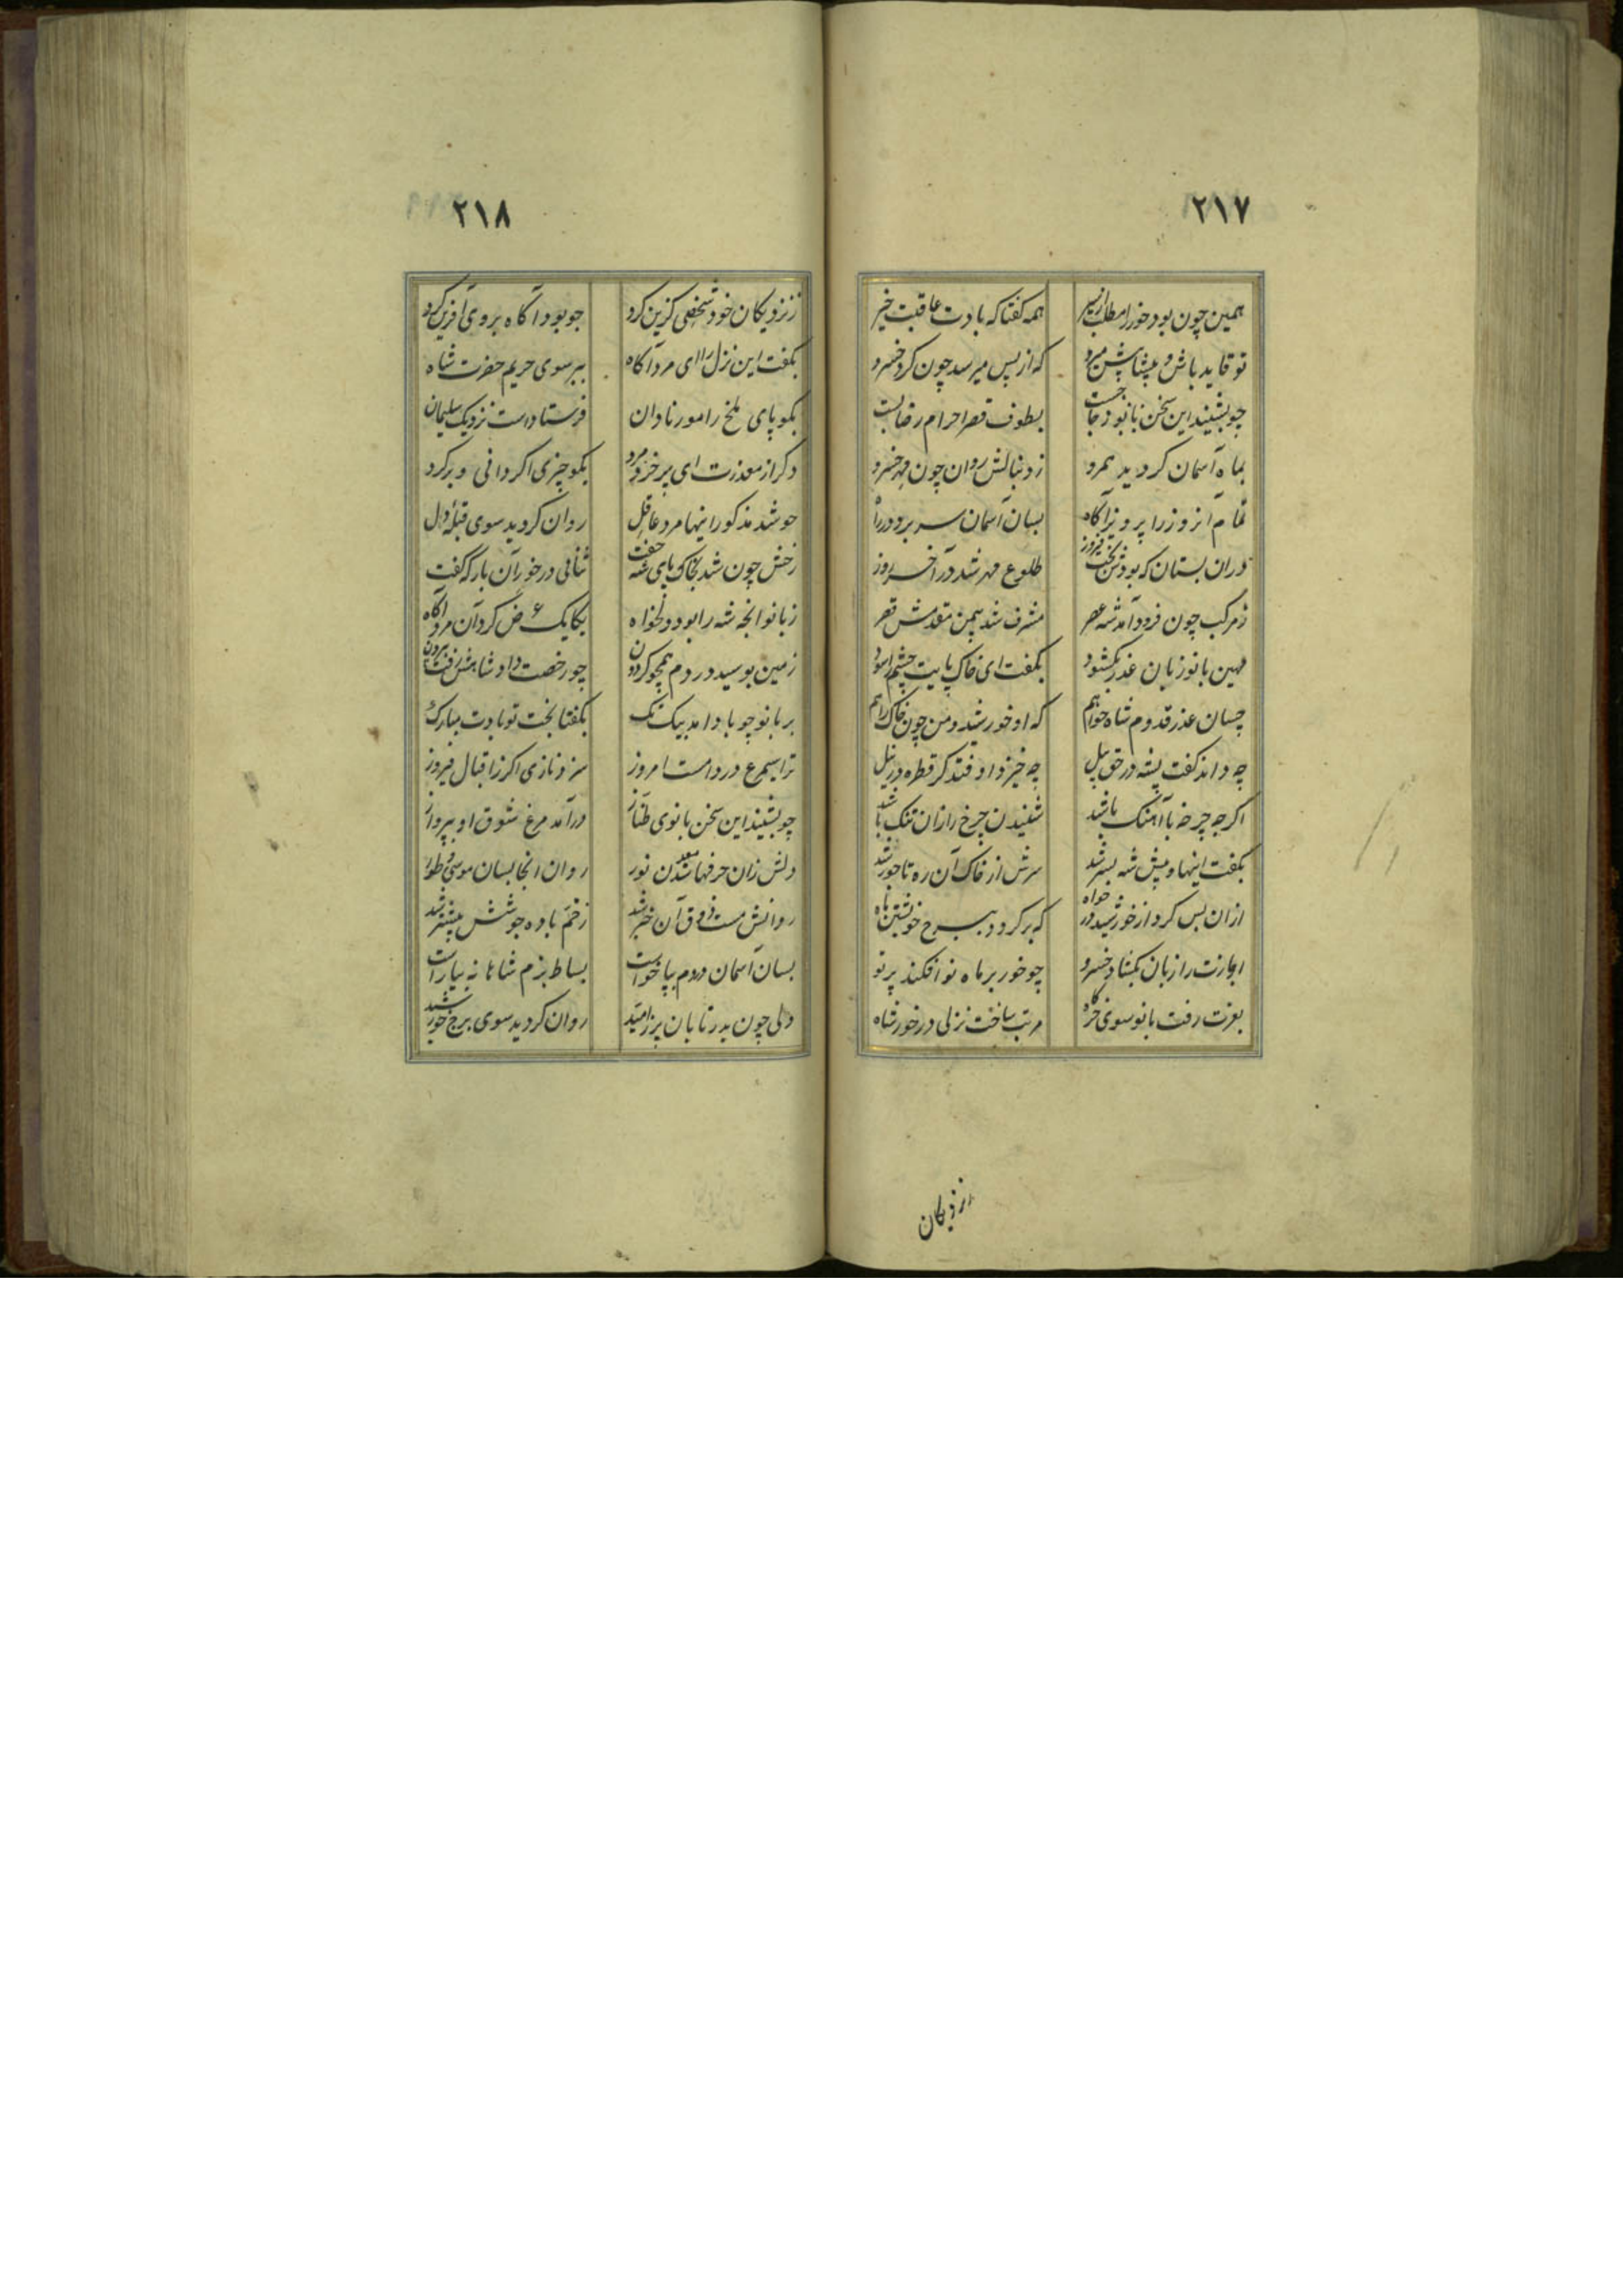 ۲۱۷
همین چون بود خور را مطلب از سیر همه گفتا که بادت عاقبت خیر
تو قاید باش و پیشاپیش میرو که از پس میرسد چون کرد خسرو
چو بشنید این سخن بانو ز جا جست بطوف قصر احرام رضا بست
بماه آسمان کردید همرو ز دنبالش روان چون مهر خسرو
تمام آنروز را پرویز آگاه بسان آسمان سر برد در راه
در آن بستان که بودش بخت فیروز طلوع مهر شد در آخر روز
ز مرکب چون فرود آمد شه عصر مشرف شد بیمن مقدمش قصر
مهین بانو زبان عذر بکشود بگفت ای خاک پایت چشم
چسان عذر قدوم شاه خواهم که او خورشید و من چون خاک راهم
چه داند گفت پشه در حق پیل چه خیزد اوفتد کر قطره در نیل
اگرچه چرخه با آهنگ باشد شنیدن چرخ را زان تنگ باشد
بگفت اینها و پیش شه بسر شد سرش از خاک آن ره تاجور شد
از آن پس کرد از خورشید در خواه که بر کردد ببرج خویشتن ماه
اجازت را زبان بکشاد خسرو چو خور بر ماه نو افکند پرتو
بعزت رفت بانو سوی خرگاه مرتب ساخت نزلی در خور شاه
نزدیکان
۲۱۸
ز نزدیکان خود شخصی کزین کرد چو بود آگاه بر وی آفرین کرد
بگفت این نزل را ای مرد آگاه ببر سوی حریم حضرت شاه
بگو پای ملخ را مور نادان فرستادست نزدیک سلیمان
دکر از معذرت ای پر خرد مرد بگو چیزی اکر دانی و برکرد
چو شد مذکور اینها مرد عاقل روان کردید سوی قبله دل
رخش چون شد بخاک پای شه جفت ثنائی در خور آن بارگه گفت
ز بانو آنچه شه را بود دلخواه یکایک عرض کرد آن مرد آگاه
زمین بوسید در دم همچو کردون چو رخصت داد شاهش رفت بیرون
بر بانو چو باد آمد بیک تک بگفتا بخت تو بادت مبارک
ترا سیمرغ در دامست امروز سزد نازی اکر ز اقبال فیروز
چو بشنید این سخن بانوی طناز درآمد مرغ شوق او بپرواز
دلش زان حرفها شد معدن نور روان آنجا بسان موسی طور
روانش مست ذوق آن خبر شد ز خم باده جوشش بیشتر شد
بسان آسمان در دم بپا خواست بساط بزم شاهانه بیاراست
دلی چون بدر تابان پر ز امید روان کردید سوی برج خورشید